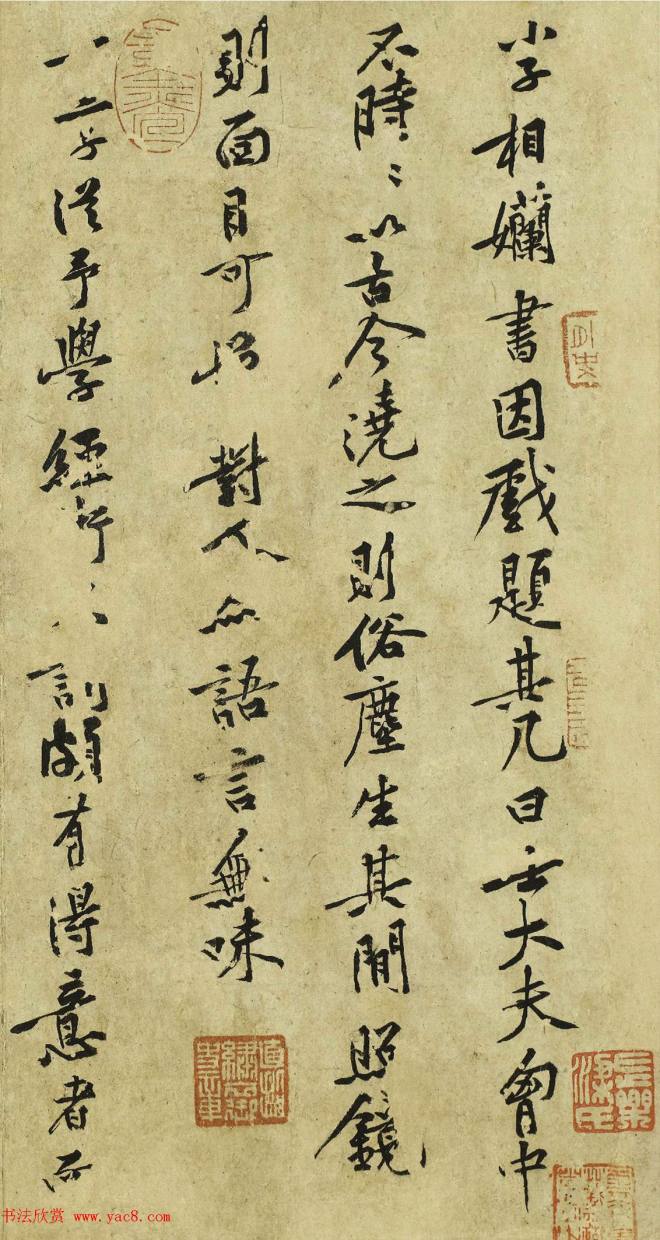 小子相孏書因戲題其几曰士大夫胷中
不時〻以古今澆之則俗塵生其間照鏡
則面目可憎對人亦語言無味
一二子從予學經行之訓頗有得意者而
书法欣赏 www.yac8.com